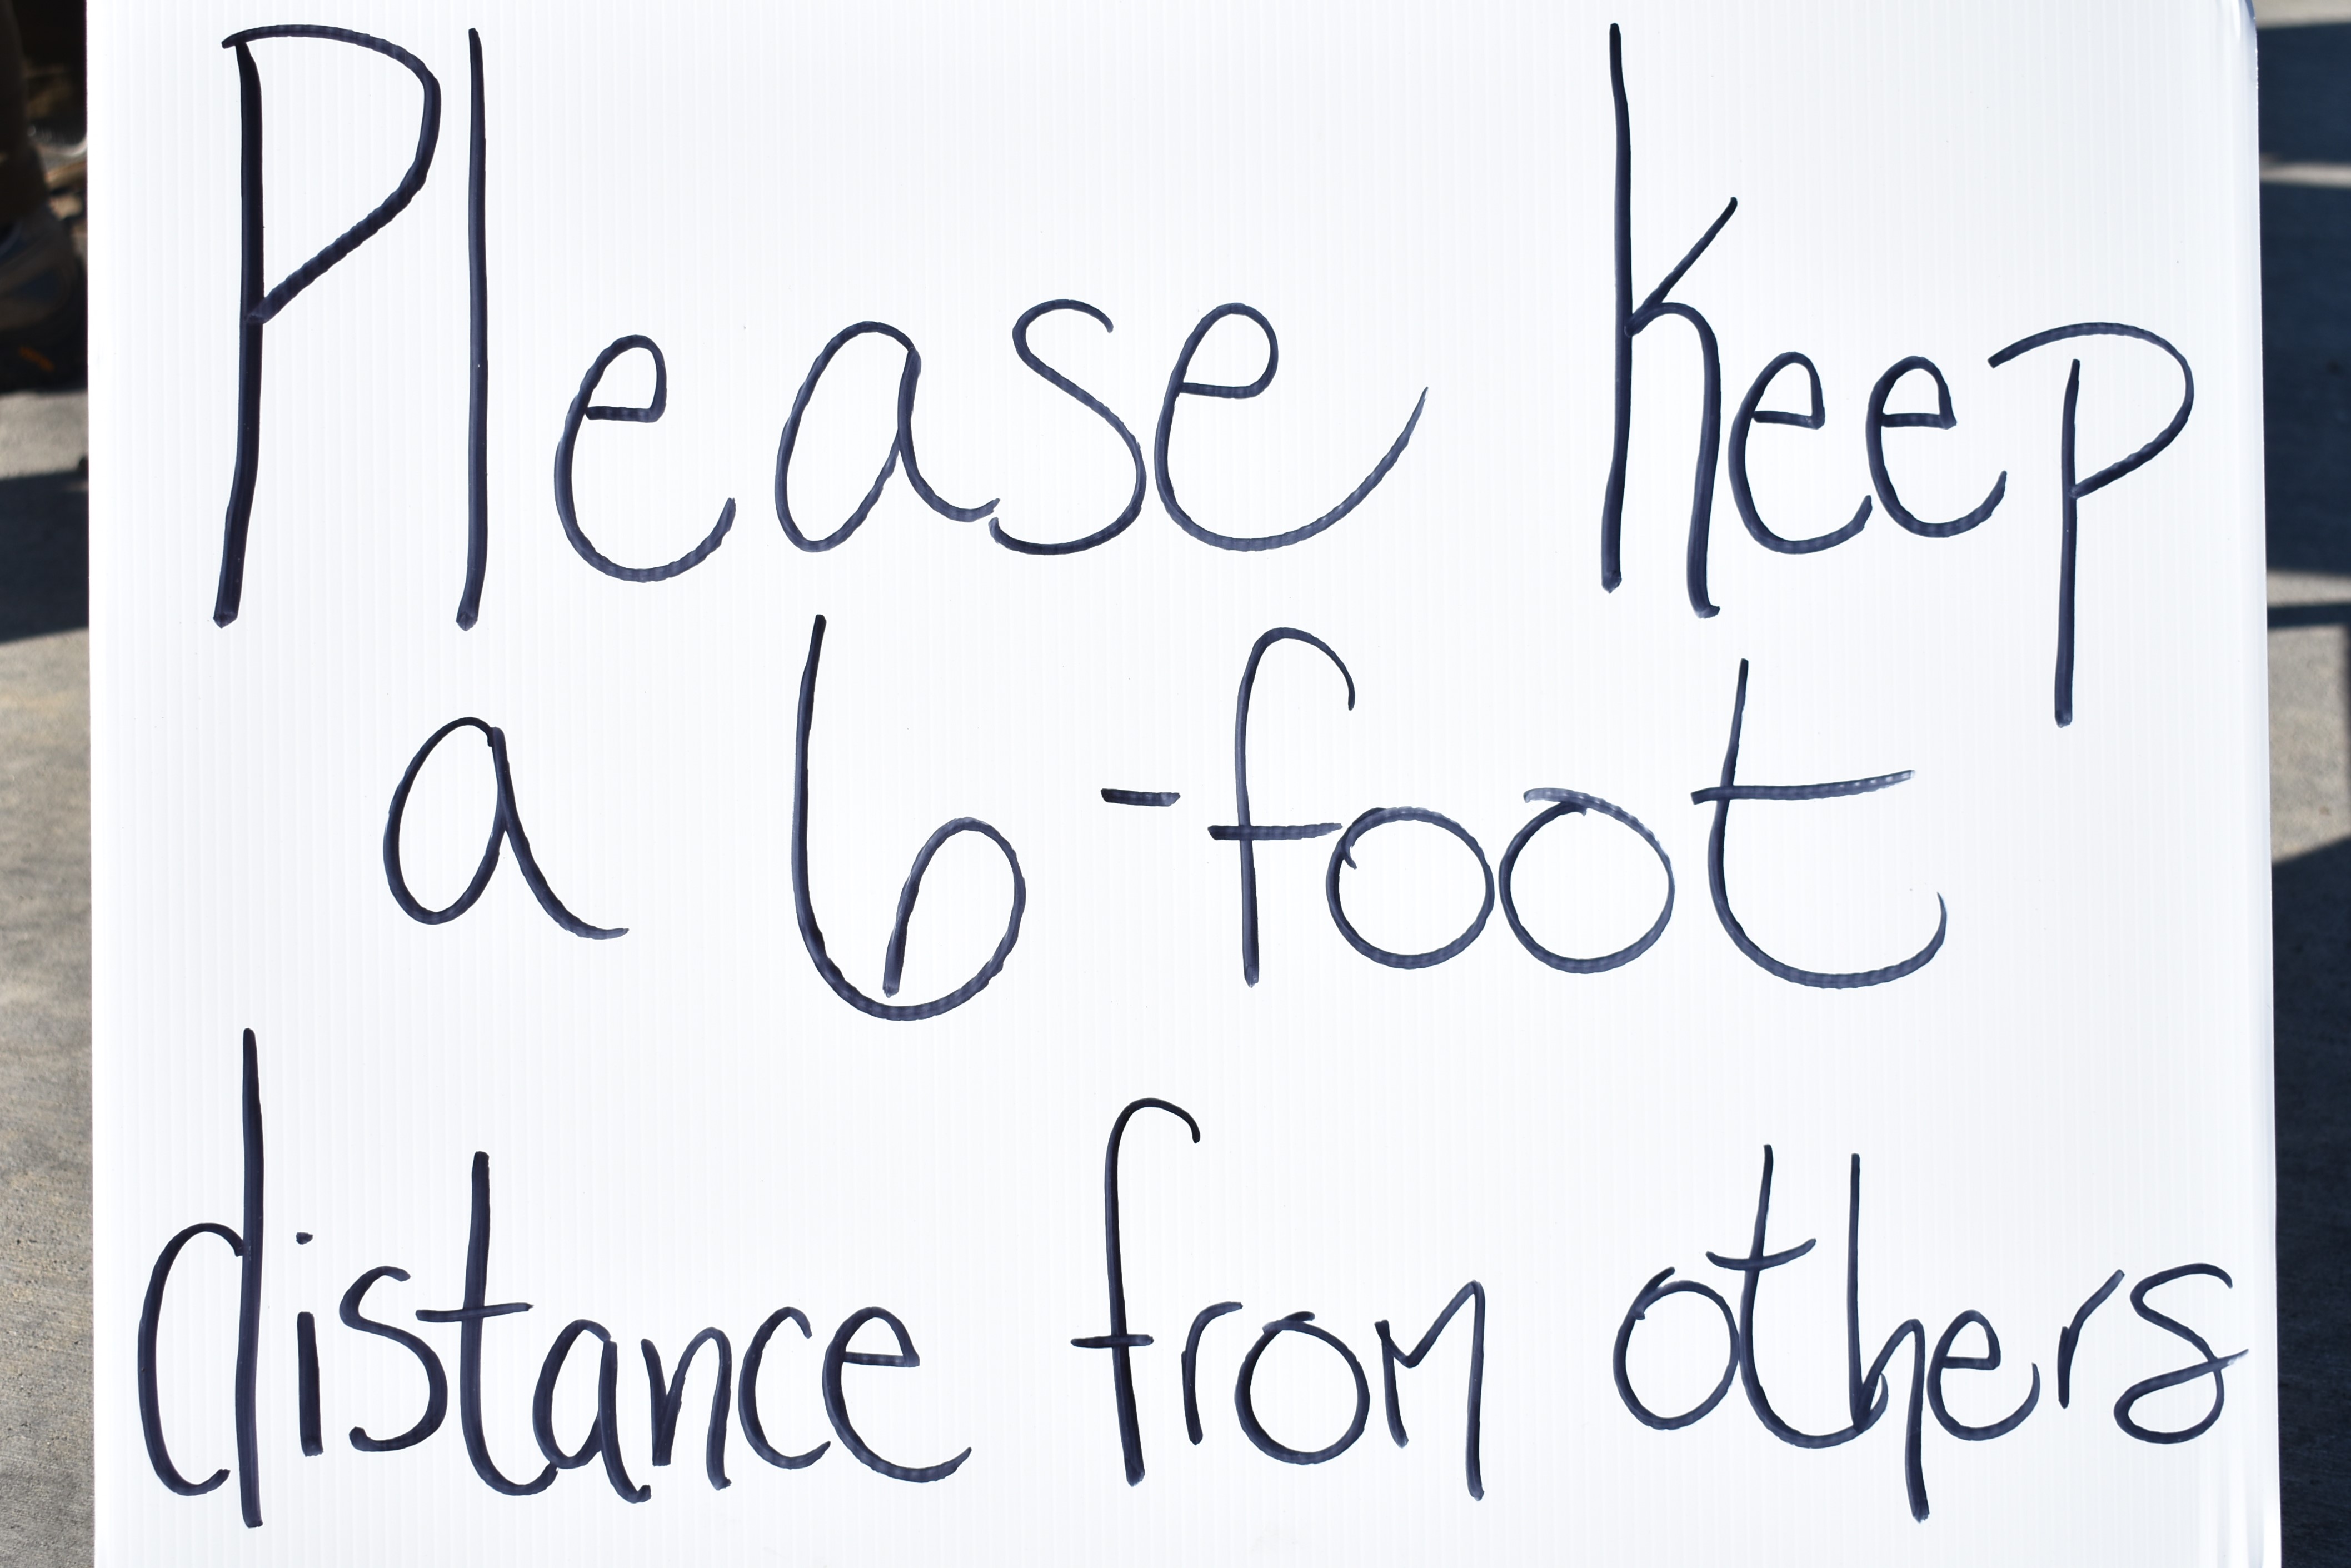 Please keep
a 6-foot
distance from others